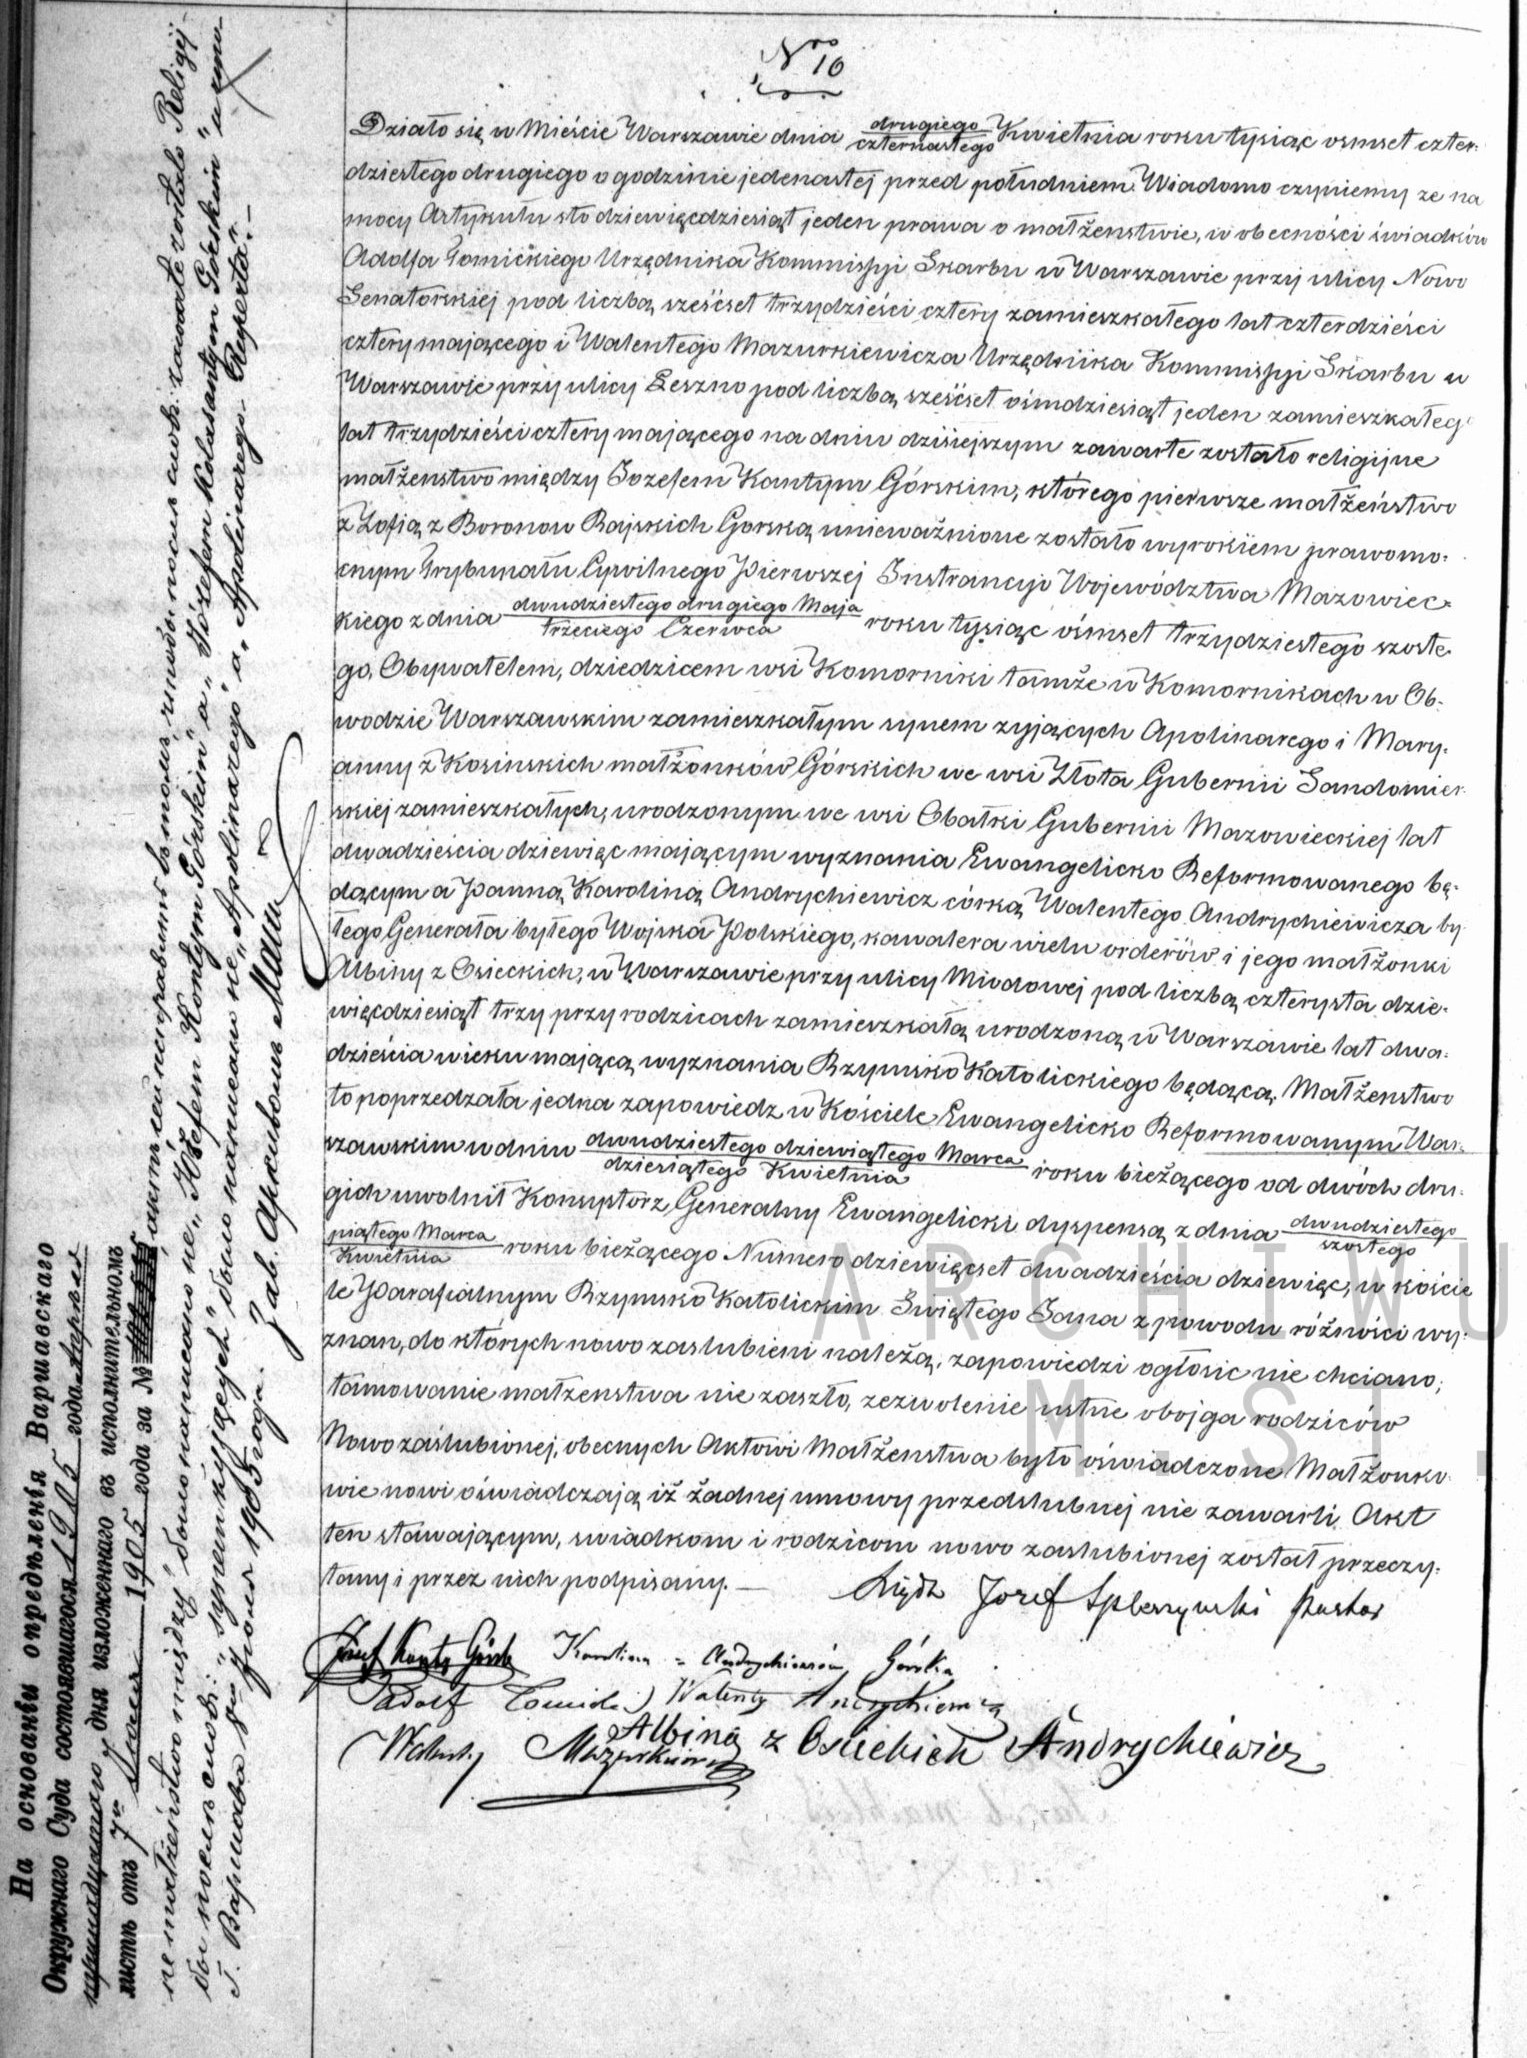 Nro 10
Działo się w Mieście Warszawie dnia drugiego/czternastego Kwietnia roku tysiąc osmset czter-
dziestego drugiego o godzinie jedenastej przed południem. Wiadomo czyniemy ze na
mocy Artykułu sto dziewięćdziesiąt jeden prawa o małżenstwie, w obecności świadków
Adolfa Łomickiego Urzędnika Kommissyi Skarbu w Warszawie przy ulicy Nowo
Senatorskiej pod liczbą sześćset trzydzieści cztery zamieszkałego lat czterdzieści
cztery mającego i Walentego Mazurkiewicza Urzędnika Kommissyi Skarbu w
Warszawie przy ulicy Leszno pod liczbą sześćset ośmdziesiąt jeden zamieszkałego
lat trzydzieści cztery mającego na dniu dzisiejszym zawarte zostało religijne
małżenstwo między Jozefem Kantym Górskim, którego pierwsze małżeństwo
z Zofią z Boronow Rajskich Gorską unieważnione zostało wyrokiem prawomo-
cnym Trybunału Cywilnego Pierwszej Instrancyi Województwa Mazowiec-
kiego z dnia dwudziestego drugiego Maja/trzeciego Czerwca roku tysiąc ośmset trzydziestego szoste-
go, Obywatelem, dziedzicem wsi Komorniki tamże w Komornikach w Ob-
wodzie Warszawskim zamieszkałym synem zyjących Apolinarego i Mary-
anny z Kosinskich małżonków Górskich we wsi Złota Gubernii Sandomier-
skiej zamieszkałych, urodzonym we wsi Obałki Gubernii Mazowieckiej lat
dwadzieścia dziewięc mającym wyznania Ewangelicko Reformowanego bę-
dącym a Panną Karoliną Andrychiewicz córką Walentego Andrychiewicza by-
łego Generała byłego Wojska Polskiego, kawalera wielu orderów i jego małżonki
Albiny z Osieckich, w Warszawie przy ulicy Miodowej pod liczbą czterysta dzie-
więcdziesiąt trzy przy rodzicach zamieszkałą urodzoną w Warszawie lat dwa-
dzieścia wieku mającą wyznania Rzymsko Katolickiego będącą. Małżenstwo
to poprzedzała jedna zapowiedz w Kościele Ewangelicko Reformowanym War-
szawskim w dniu dwudziestego dziewiątego Marca/dziesiątego Kwietnia roku bieżącego od dwóch dru-
gich uwolnił Konsystorz Generalny Ewangelicki dyspensą z dnia dwudziestego/szostego
piątego Marca/Kwietnia roku bieżącego Numero dziewięcset dwadzieścia dziewięc, w kościé
le Parafialnym Rzymsko Katolickim Swiętego Jana z powodu różności wy-
znan, do których nowo zaslubieni należą, zapowiedzi ogłosic nie chciano;
tamowanie małzenstwa nie zaszło, zezwolenie ustne obojga rodziców
Nowozaślubionej, obecnych Aktowi Małżenstwa było oświadczone Małżonko-
wie nowi oświadczają iż żadnej umowy przedslubnej nie zawarli. Akt
ten stawającym, swiadkom i rodzicom nowo zaslubionej został przeczy-
tany i przez nich podpisany.—
Ksiądz Jozef Spleszynski Pastor
Józef Kanty Górski Karolina z Andrychiewiczów Górska
Adolf Łomicki Walenty Andrychiewicz
Albina z Osieckich Andrychiewicz
Walenty Mazurkiewicz
На основаніи опредѣленія Варшавскаго
Окружнаго Суда состоявшагося 1905 года Апрѣля
дня изложеннаго въ исполнительномъ
листѣ отъ 7го Іюля 1905 года за № актъ сей исправить въ томъ, чтобы послѣ словъ: zawarte zostało Religij-
ne małżeństwo między" было написано не „Józefem Kantym Górskim" a „Józefem Kalasantym Górskim" и что-
бы послѣ словъ: „synem żyjących" было написано не „Apolinarego" a „Apolinarego Ruperta".—
Г. Варшава 8го Іюля 1905 года. Зав. Архивомъ
ARCHIWU
M.ST.